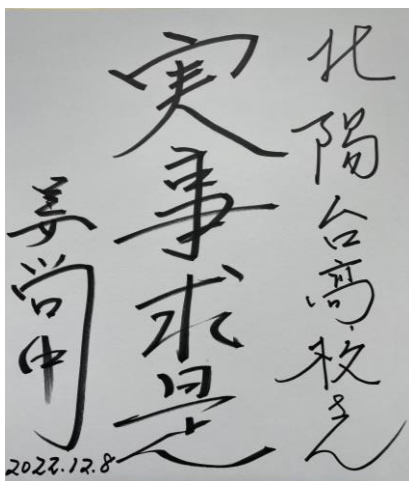 北陽台高校さん
実事求是
姜尚中
2022.12.8